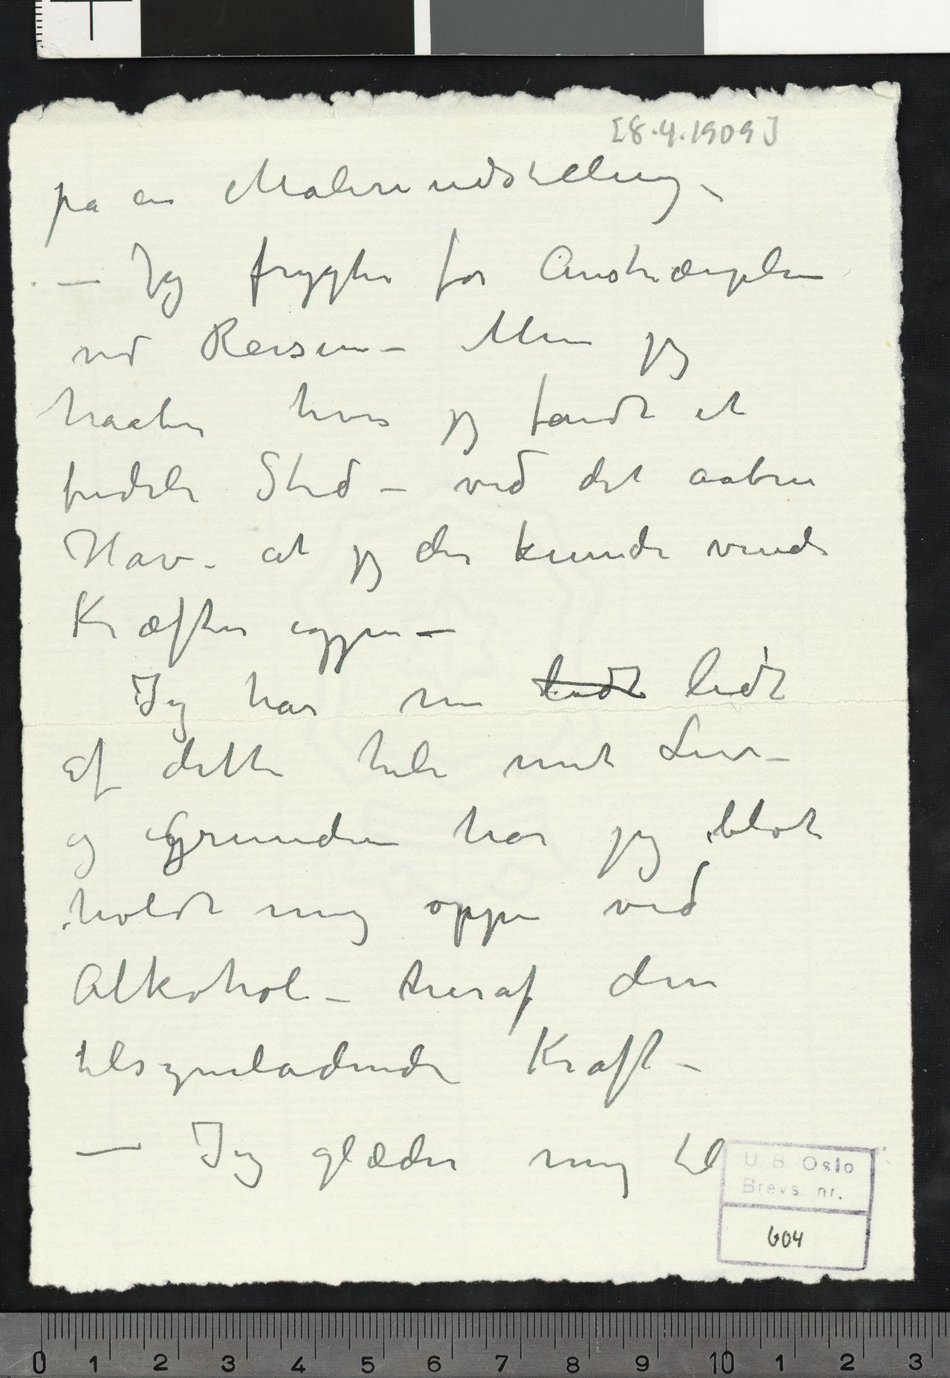 [8.4.1909]
på en Maleriudstelling –
– Jeg frygter for Anstrængelsen
ved Reisen – Men jeg
haaber hvis jeg fandt et
fredeli Sted – ved det aabne
Hav – at jeg der kunde vinde
Kræfter igjen –
Jeg har nu lidt lidt
af dette hele mit Liv –
og igrunden har jeg blot
holdt mig oppe ved
Alkohol – heraf den
tilsyneladende Kraft –
– Jeg glæder mig til
U. B. Oslo
Brevs. nr.
604
0 1 2 3 4 5 6 7 8 9 10 1 2 3